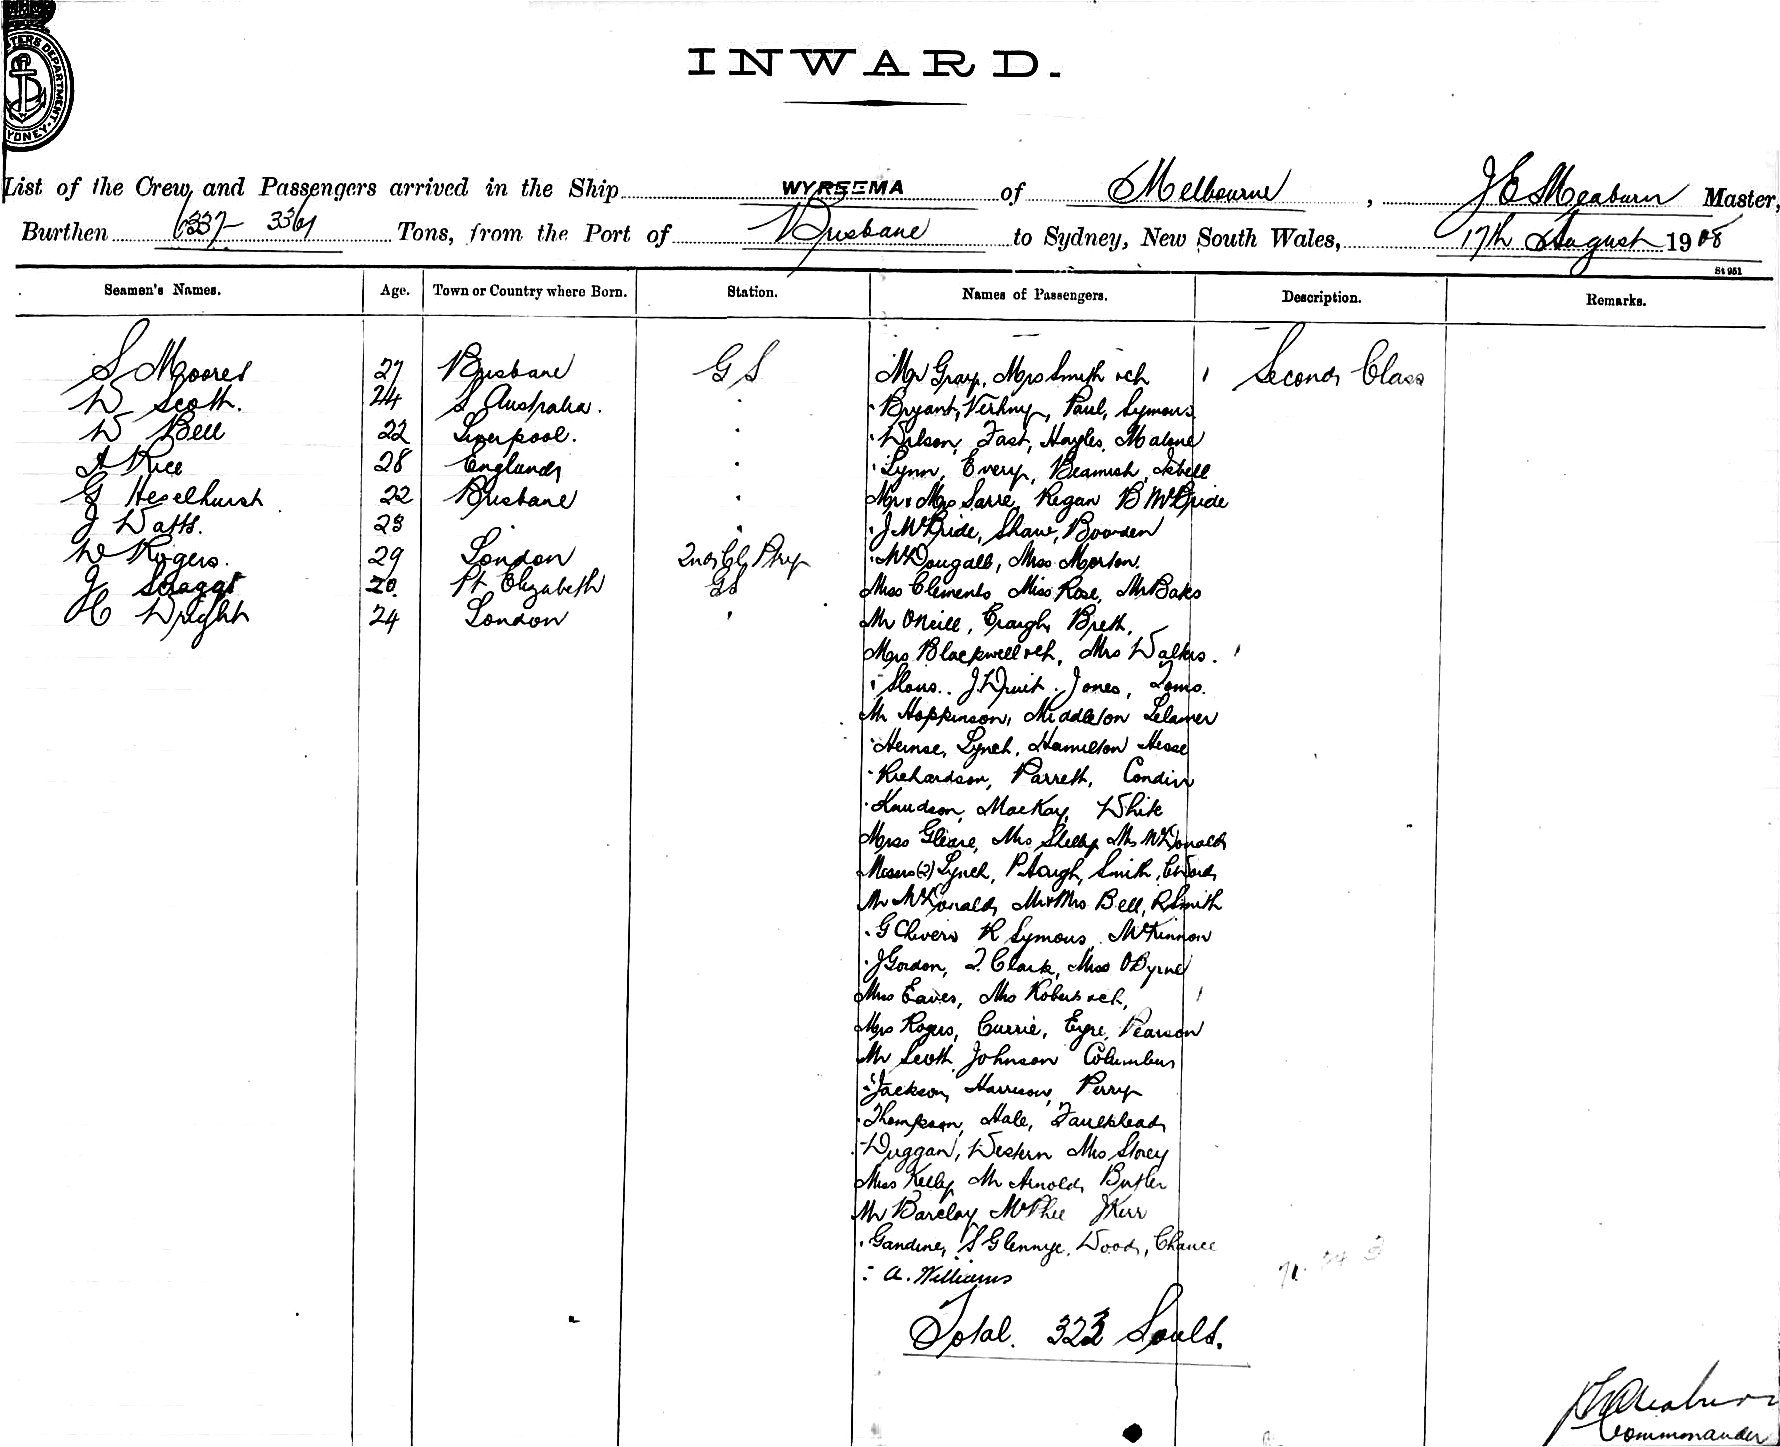 INWARD.
List of the Crew and Passengers arrived in the Ship WYREEMA of Melbourne, J E Meaburn Master,
Burthen 6337 - 3361 Tons, from the Port of Brisbane to Sydney, New South Wales, 17th August 1908
St 951
Seamen's Names. Age. Town or Country where Born. Station. Names of Passengers. Description. Remarks.
S Moores 27 Brisbane G S Mr Gray, Mrs Smith & ch 1 Second Class
W Scott. 24 S Australia. " Bryant, Paul, Symons
W Bell 22 Liverpool. " Wilson, Fast, Hayles, Malone
A Rice 28 England " Lynn, Every, Beamish, Isbell
G Heselhurst 22 Brisbane " Mr & Mrs Sarre, Regan B McBride
J Watts. 23 " J McBride, Shaw, Bowden
W Rogers. 29 London 2nd Cl Ptry " McDougall, Miss Morton.
J Scaggs 20. Pt Elizabeth GS Miss Clements Miss Rose, Mr Baks
H Wright 24 London " Mr O'Neill, Craigh, Brett,
Mrs Blackwell & ch, Mrs Walters. 1
J Druit. Jones, Toms.
Mr Hopkinson, Middleton
" Heinse, Lynch, Hamilton Hesse
" Richardson, Parrett, Condin
" Knudson, MacKay, White
Miss Gleare, Mrs Shelly Mr McDonald
Misses (2) Lynch, P Haugh, Smith, C Ward
Mr McDonald, Mr & Mrs Bell, R Smith
" G Chivers R Symons, McKinnon
" J Gordon, T. Clark, Miss O'Byrne
Mrs Eaves, Mrs Roberts & ch, 1
Mrs Rogers, Currie, Eyre, Pearson
Mr Scott Johnson Columbus
" Jackson, Harrison, Perry
" Thompson, Hale, Faulkhead
" Duggan, Western Mrs Storey
Miss Kelly, Mr Arnold, Butler
Mr Barclay McPhee J Kerr
" Gardiner, S Glennye, Wood, Chance
" A. Williams
Total. 323 Souls.
J E Meaburn
Commander